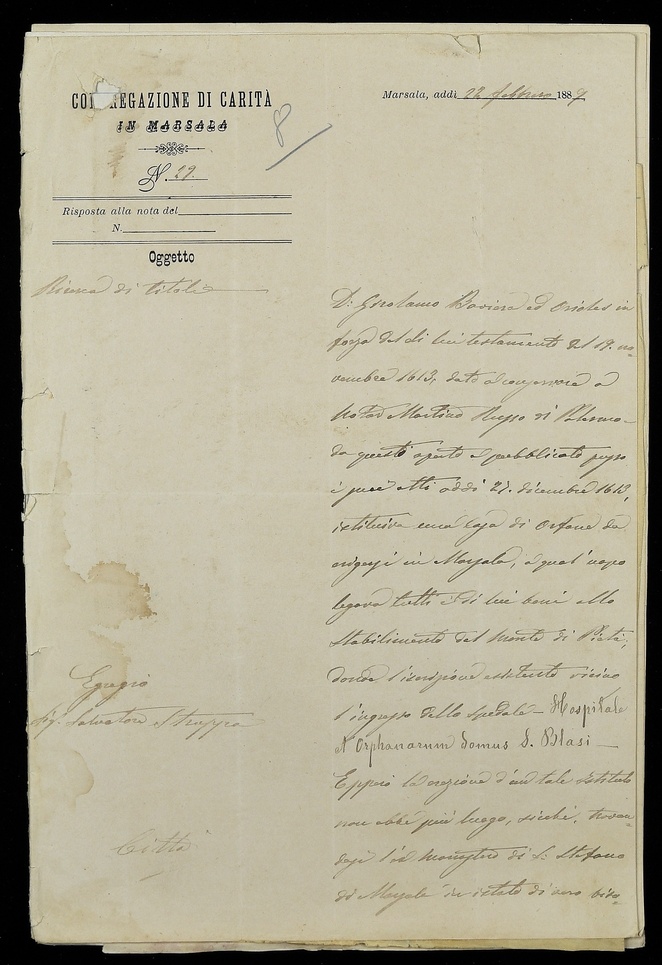 CONGREGAZIONE DI CARITÀ
IN MARSALA
N. 29.
Risposta alla nota del
N.
Oggetto
Ricerca di titoli
Egregio
Sig. Salvatore Struppa
Città
8
Marsala, addì 22 febbraio 1889
D: Girolamo Baviera ed Orioles in
forza del di lui testamento del 19. no=
vembre 1613, dato a conservare a
Notar Martino Russo di Palermo
da questi aperto e pubblicato presso
i suoi atti addì 27. dicembre 1613,
istituiva una Casa di Orfane da
erigersi in Marsala, a qual'uopo
legava tutti i di lui beni allo
Stabilimento del Monte di Pietà,
donde l'iscrizione esistente vicino
l'ingresso dello Spedale — Hospitale
et Orphanarum domus S. Blasi —
Eppure la erezione d'un tale istituto
non ebbe più luogo, sicchè, trovan=
dosi l'ex Monastero di S. Stefano
di Marsala in istato di vero biso=